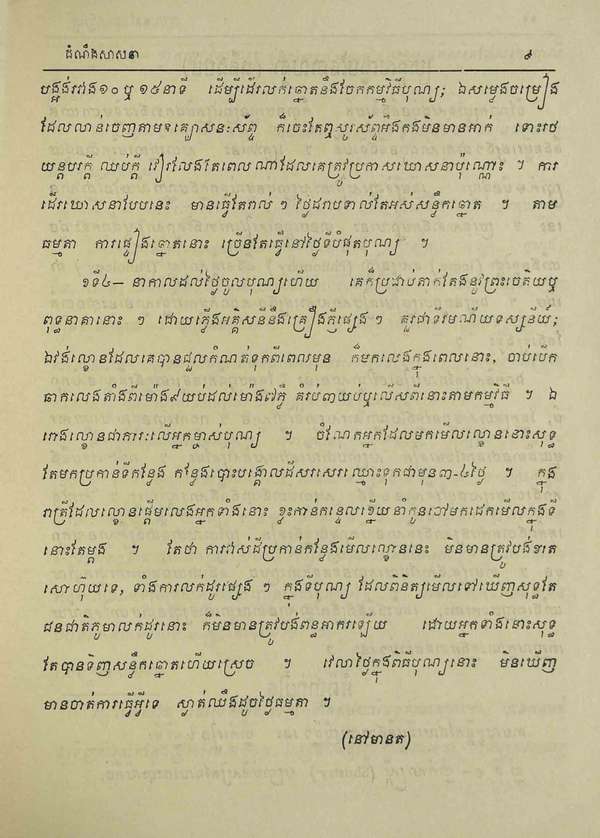 ដំណឹងសាសនា ៩
បង្អង់រវាង១០ ឬ ១៥នាទី ដើម្បីដើរលក់ឆ្នោតនឹងចែកកម្មវិធីបុណ្យ; ឯសម្លេងចម្រៀង
ដែលលាន់ចេញតាម
ក៏ចេះតែឮសូរស័ព្ទអឺងកងមិនមានអាក់ ទោះរថ
យន្តបរក្តី ឈប់ក្តី វៀរលែងតែពេលណាដែលគេត្រូវប្រកាសឃោសនាប៉ុណ្ណោះ ។ ការ
ដើរឃោសនាបែបនេះ មានធ្វើតែរាល់ ៗ ថ្ងៃដរាបទាល់តែអស់សន្លឹកឆ្នោត ។ តាម
ធម្មតា ការផ្សៀងឆ្នោតនោះ ច្រើនតែធ្វើនៅថ្ងៃទីបំផុតបុណ្យ ។
ខទី៤— នាកាលដល់ថ្ងៃចូលបុណ្យហើយ គេក៏ប្រដាប់តាក់តែងនូវព្រះចេតិយឬ
ពុទ្ធនាតានោះ ៗ ដោយភ្លើងអគ្គិសនីនឹងគ្រឿងភ្លឺផ្សេង ៗ គួរជាទីរមណីយទស្សនីយ៍;
ឯវង់ល្ខោនដែលគេបានជួលកំណត់ទុកពីពេលមុន ក៏មកលេងក្នុងពេលនោះ, ចាប់បើក
ឆាកលេងតាំងពីម៉ោង៩យប់ដល់ម៉ោង៧ភ្លឺ គំរប់៣យប់ឬលើសពីនោះតាមកម្មវិធី ។ ឯ
រោងល្ខោនជាការៈលើអ្នកម្ចាស់បុណ្យ ។ ចំណែកអ្នកដែលមកមើលល្ខោននោះសុទ្ធ
តែមកប្រកាន់ទីកន្លែង កន្លែងបោះបង្គោលដីសរសេរឈ្មោះទុកជាមុន៣-៤ថ្ងៃ ។ ក្នុង
រាត្រីដែលល្ខោនផ្ដើមលេងអ្នកទាំងនោះ ខ្លះកាន់កន្ទេលខ្នើយនាំកូនចៅមកដេកមើលក្នុងទី
នោះតែម្តង ។ តែថា ការដាស់ដីប្រកាន់កន្លែងមើលល្ខោននេះ មិនមានត្រូវបង់ខាត
សោហ៊ុយទេ, ទាំងការលក់ដូរផ្សេង ៗ ក្នុងទីបុណ្យ ដែលពិនិត្យមើលទៅឃើញសុទ្ធតែ
ជនជាតិភូមាលក់ដូរនោះ ក៏មិនមានត្រូវបង់ពន្ធអាករឡើយ ដោយអ្នកទាំងនោះសុទ្ធ
តែបានទិញសន្លឹកឆ្នោតហើយស្រេច ។ វេលាថ្ងៃក្នុងពិធីបុណ្យនោះ មិនឃើញ
មានចាត់ការធ្វើអ្វីទេ ស្ងាត់ឈឹងដូចថ្ងៃធម្មតា ។
(នៅមានត)